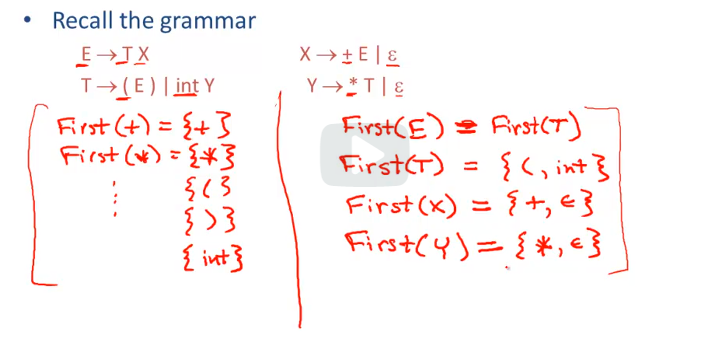 • Recall the grammar
E → T X
X → + E | ε
T → ( E ) | int Y
Y → * T | ε
First(+) = {+}
First(*) = {*}
⋮ {(}
⋮ {)}
{int}
First(E) = First(T)
First(T) = {(, int}
First(X) = {+, ε}
First(Y) = {*, ε}